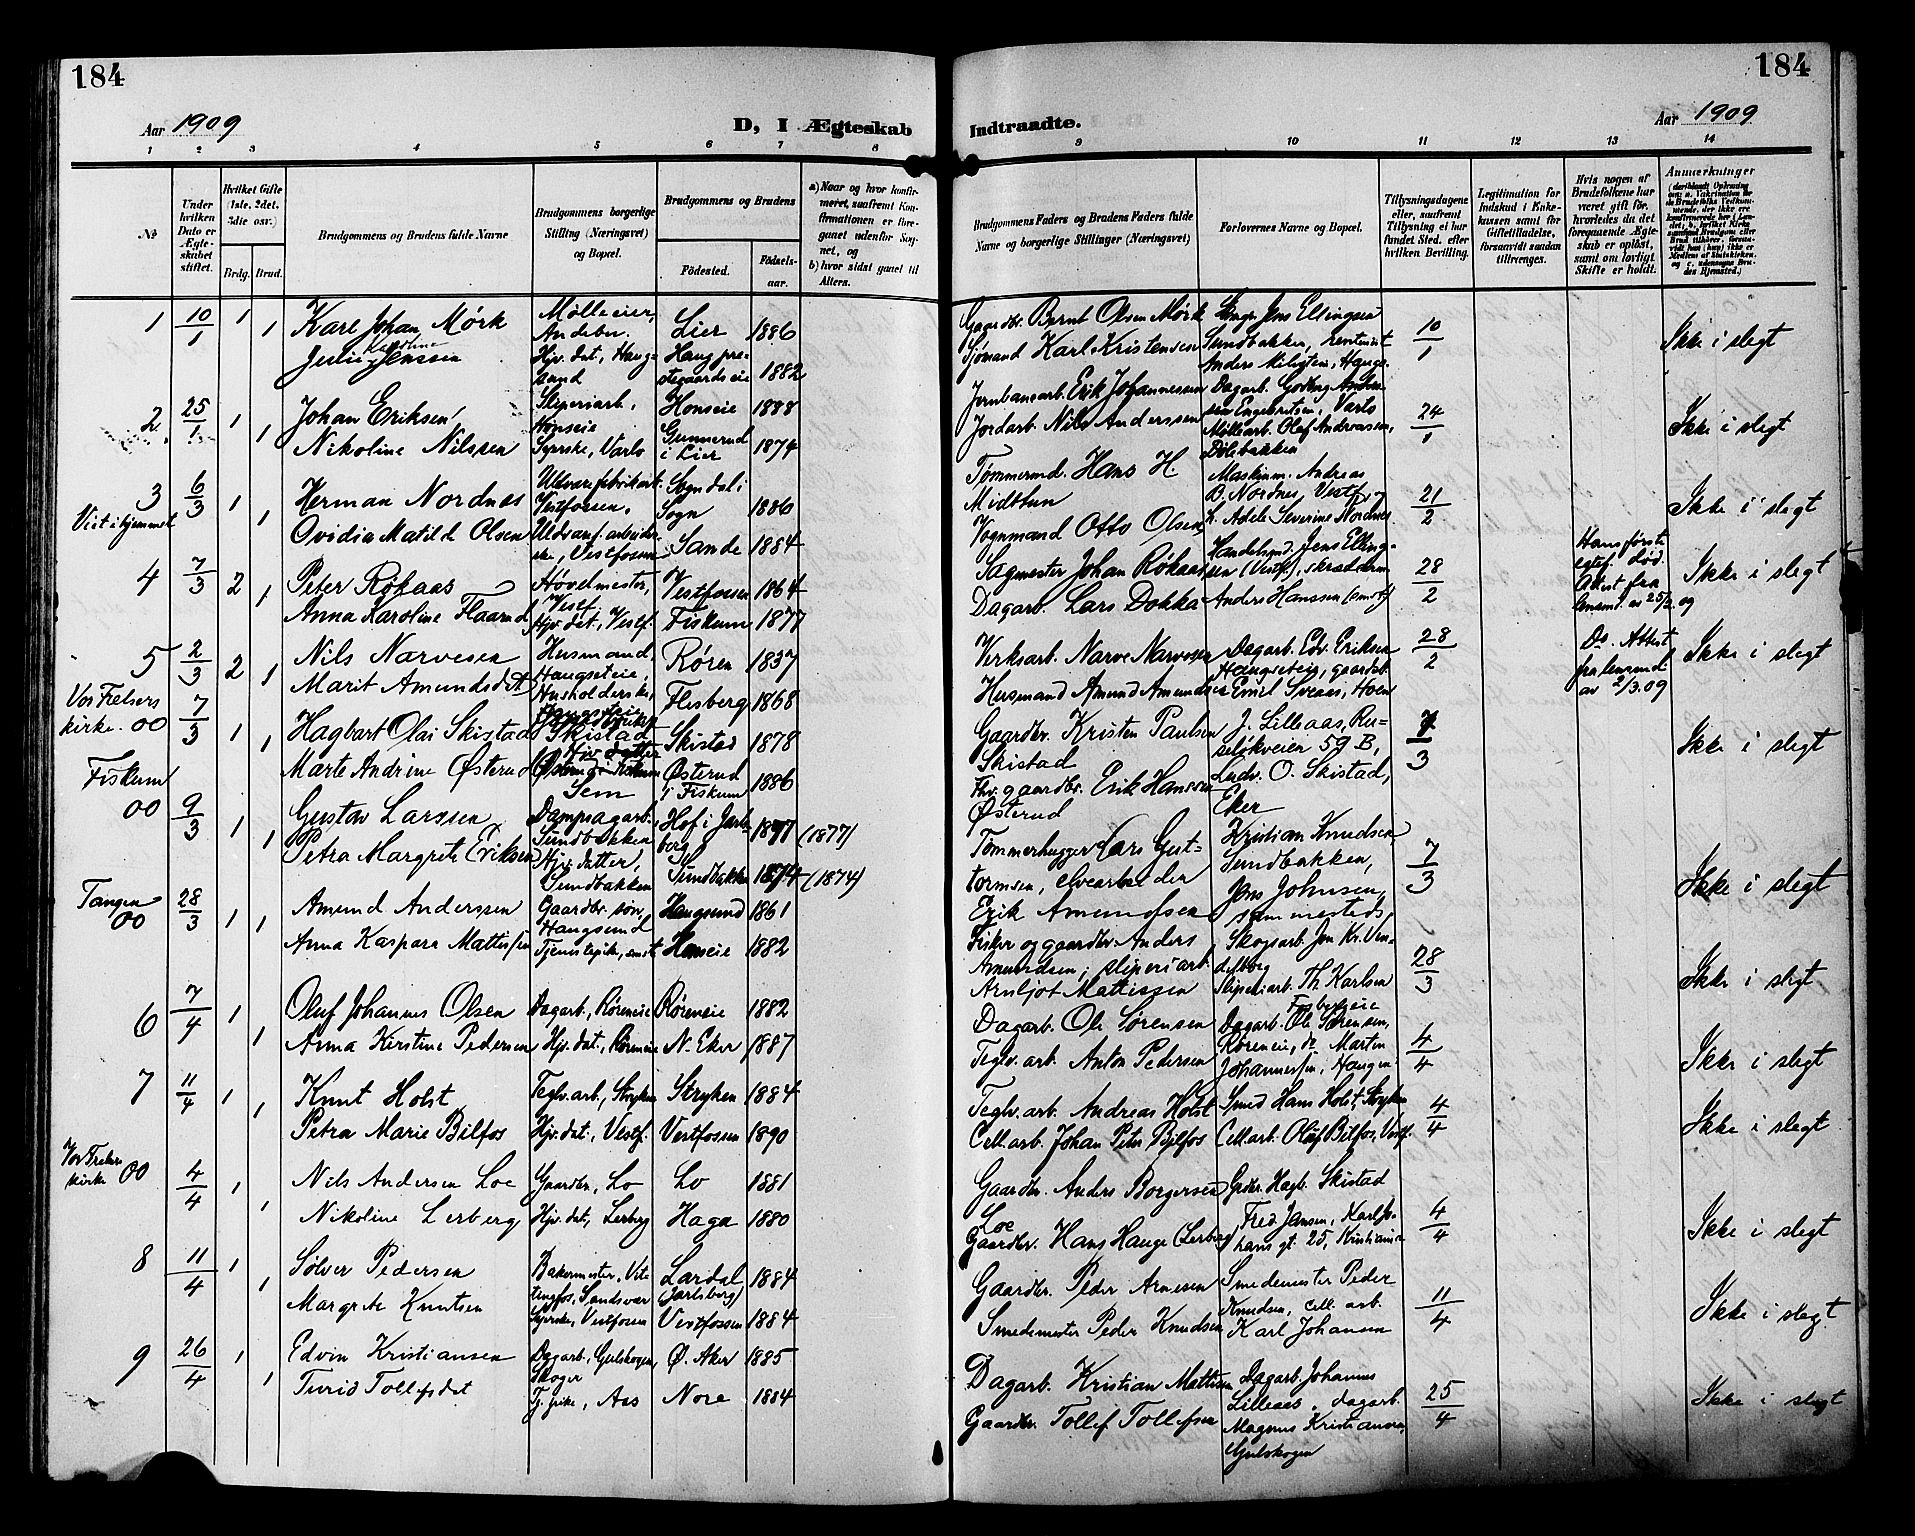 184
184
Aar 1909
D, I Ægteskab
Indtraadte.
Aar 1909
1 2 3 4 5 6 7 8 9 10 11 12 13 14
No
Under hvilken Dato er Ægteskabet stiftet.
Hvilket Gifte (1ste, 2det, 3die osv.)
Brdg. Brud.
Brudgommens og Brudens fulde Navne
Brudgommens borgerlige Stilling (Næringsvei) og Bopæl.
Brudgommens og Brudens
Fødested. Fødselsaar.
a) Naar og hvor konfirmeret, saafremt Konfirmationen er foregaaet udenfor Sognet, og
b) hvor sidst gaaet til Alters.
Brudgommens Faders og Brudens Faders fulde Navne og borgerlige Stillinger (Næringsvei)
Forlovernes Navne og Bopæl.
Tillysningsdagene eller, saafremt Tillysning ei har fundet Sted, efter hvilken Bevilling.
Legitimation for Indskud i Enkekassen samt for Giftetilladelse, forsaavidt saadan tiltrænges.
Hvis nogen af Brudefolkene har været gift før, hvorledes da det foregaaende Ægteskab er opløst, samt om lovligt Skifte er holdt.
Anmerkninger
1 10/1 1 1
Karl Johan Mørk
Julie Karoline Jenssen
Mølleeier,
Hjv. dat, Haugsund
Lier 1886
Haug prestegaardseie 1882
Gaardbr. Bernt Olsen Mørk
Sjømand Karl Kristensen
Jens Ellingsen
Sundbakken, rentenist
10/1
Ikke i slegt
2 25/1 1 1
Johan Eriksen
Nikoline Nilssen
Sliperiarb., Honseie
Syerske, Varlo
Honseie 1888
Gunnerud i Lier 1874
Jernbanearb. Erik Johannessen
Jordarb. Nils Anderssen
Dagarb.
Møllearb. Olaf Andreassen,
24/1
Ikke i slegt
3 6/3 1 1
Viet i hjemmet
Herman Nordnes
Ovidia Matilde Olsen
Vestfossen,
Sogndal i Sogn 1886
Sande 1884
Tømmermd. Hans H. Midttun
Vognmand Otto Olsen
Maskinm. Andreas
B. Nordnes, Vestf. og
fr. Adele Severine Nordnes
21/2
Ikke i slegt
4 7/3 2 1
Peter Røkaas
Anna Karoline Flaarud
Høvelmester, Vestf.
Hjv. dat, Vestf.
Vestfossen 1864
Fiskum 1877
Sagmester Johan Røkaas
Dagarb. Lars Dokka
Handelsmd. Jens Ellingsen (Vestf), skrædderm
Anders Hanssen (smst)
28/2
Hans første egtef. død. Attest fra lensmd. av 25/2 09
Ikke i slegt
5 2/3 2 1
Nils Narvesen
Marit Amundsdat
Husmand, Haugseteie,
Husholderske,
Røren 1837
Flesberg 1868
Verksarb. Narve Narvesen
Husmand Amund Amundsen
Dagarb. Edv. Eriksen
Haugseteie, gaardbr.
Emil Sveaas, Hoen
28/2
Do. Attest fra lensmd av 2/3.09
Ikke i slegt
Vor Frelsers kirke. 00 7/3 1 1
Hagbart Olai Skistad
Marte Andrine Østerud
Skistad
Hjv. datter
Skistad 1878
Østerud i Fiskum 1886
Gaardbr. Kristen Paulsen Skistad
Fhv. gaardbr. Erik Hanssen Østerud
J. Lilleaas, Ruseløkveien 59 B,
Ludv. O. Skistad, Eker
7/3
Ikke i slegt
Fiskum 00 9/3 1 1
Gustav Larssen
Petra Margrete Eriksen
Sem
Dampsagarb., Sundbakken
Hjv. datter, Sundbakken
Hof i Jarlsberg 1877 (1877)
Sundbakken 1874 (1874)
Tømmerhugger Lars Guttormsen, elvearbeider
Erik Amundsen
Kristian Knudsen, Sundbakken,
Jens Johnsen, sammesteds,
7/3
Ikke i slegt
Tangen 00 28/3 1 1
Amund Anderssen
Anna Kaspara Mattissen
Gaardbr. søn, Haugsund
Tjenestepike, smst
Haugsund 1861
Honseie 1882
Fisker og gaardbr. Anders Amundsen, sliperiarb.
Arnljot Mattissen
Skogsarb. Jon Kr.
Sliperiarb. Th Karlsen
28/3
Ikke i slegt
6 7/4 1 1
Oluf Johannes Olsen
Anna Kirstine Pedersen
Dagarb., Røreneie
Hjv. dat., Røreneie
Røreneie 1882
N. Eker 1887
Dagarb. Ole Sørensen
Teglv. arb. Anton Pedersen
Dagarb. Ole Sørensen,
Røreneie, do Martin
Johannessen, Haugen
4/4
Ikke i slegt
7 11/4 1 1
Knut Holst
Petra Marie Bilfos
Teglv. arb., Stryken
Hjv. dat., Vestf.
Stryken 1884
Vestfossen 1890
Teglv. arb. Andreas Holst
Cell. arb. Johan Peter Bilfos
Smed Hans Holst, Stryken
Cell arb. Oluf Bilfos, Vestf.
4/4
Ikke i slegt
Vor Frelsers kirke 00 4/4 1 1
Nils Andersen Loe
Nikoline Lerberg
Gaardbr., Lo
Hjv. dat, Lerberg
Lo 1881
Haga 1880
Gaardbr. Anders Borgersen Loe
Gaardbr. Hans Hauge (Lerberg)
Grdbr. Hagb. Skistad
Fred Jansen, Karl Johans gt. 25, Kristiania
4/4
Ikke i slegt
8 11/4 1 1
Sølver Pedersen
Margrete Knutsen
Bakermester, Vitingfos, Sandsvær
Syerske, Vestfossen
Lardal (Jarlsberg) 1884
Vestfossen 1884
Gaardbr. Peder Arnesen
Smedemester Peder Knudsen
Smedemester Peder Knudsen, cell. arb.
Karl Johansen
11/4
Ikke i slegt
9 26/4 1 1
Edvin Kristiansen
Turid Tollefsdat
Dagarb., Gulskogen, Skoger
Tj. pike, Aas
Ø. Aker 1885
Nore 1884
Dagarb. Kristian Mattisen
Gaardbr. Tollef Tollefsen
Dagarb. Johannes Lilleaas, dagarb.
Magnus Kristiansen, Gulskogen
25/4
Ikke i slegt